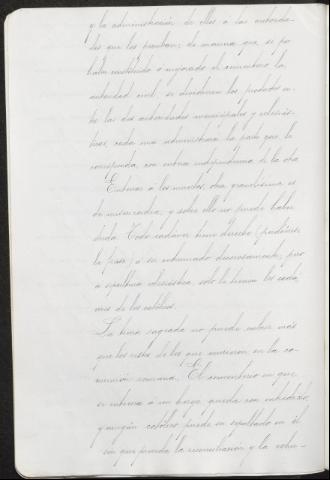 y la administración de ellos á las autorida-
des que los prueban; de manera que, si por
haber construido ó mejorado el cementerio la
autoridad civil, se dividieren los productos en-
tre las dos autoridades municipales y eclesiás-
ticas, cada una administrará la parte que le
corresponda, con entera independencia de la otra.
Enterrar á los muertos, obra grandísima es
de misericordia; y sobre ello no puede haber
duda. Todo cadáver tiene derecho (pudiéramos
la frase) á ser inhumado decorosamente; pero
á sepultura eclesiástica, solo la tienen los cadá-
veres de los católicos.
La tierra sagrada no puede cubrir más
que los restos de los que murieron en la co-
munión romana. El cementerio en que
se entierra á un hereje queda con entredicho,
y ningún católico puede ser sepultado en él
sin que preceda la reconciliación y la exhu-